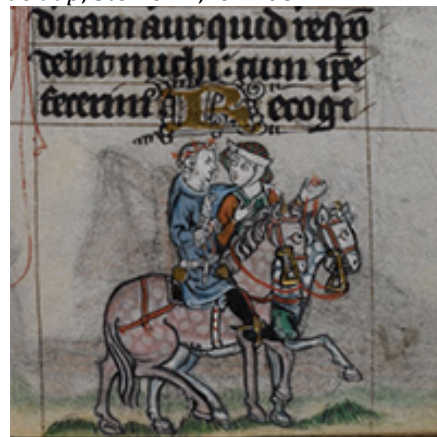 dicam aut quid respõ
debit michi: cum ip̄e
Recogi